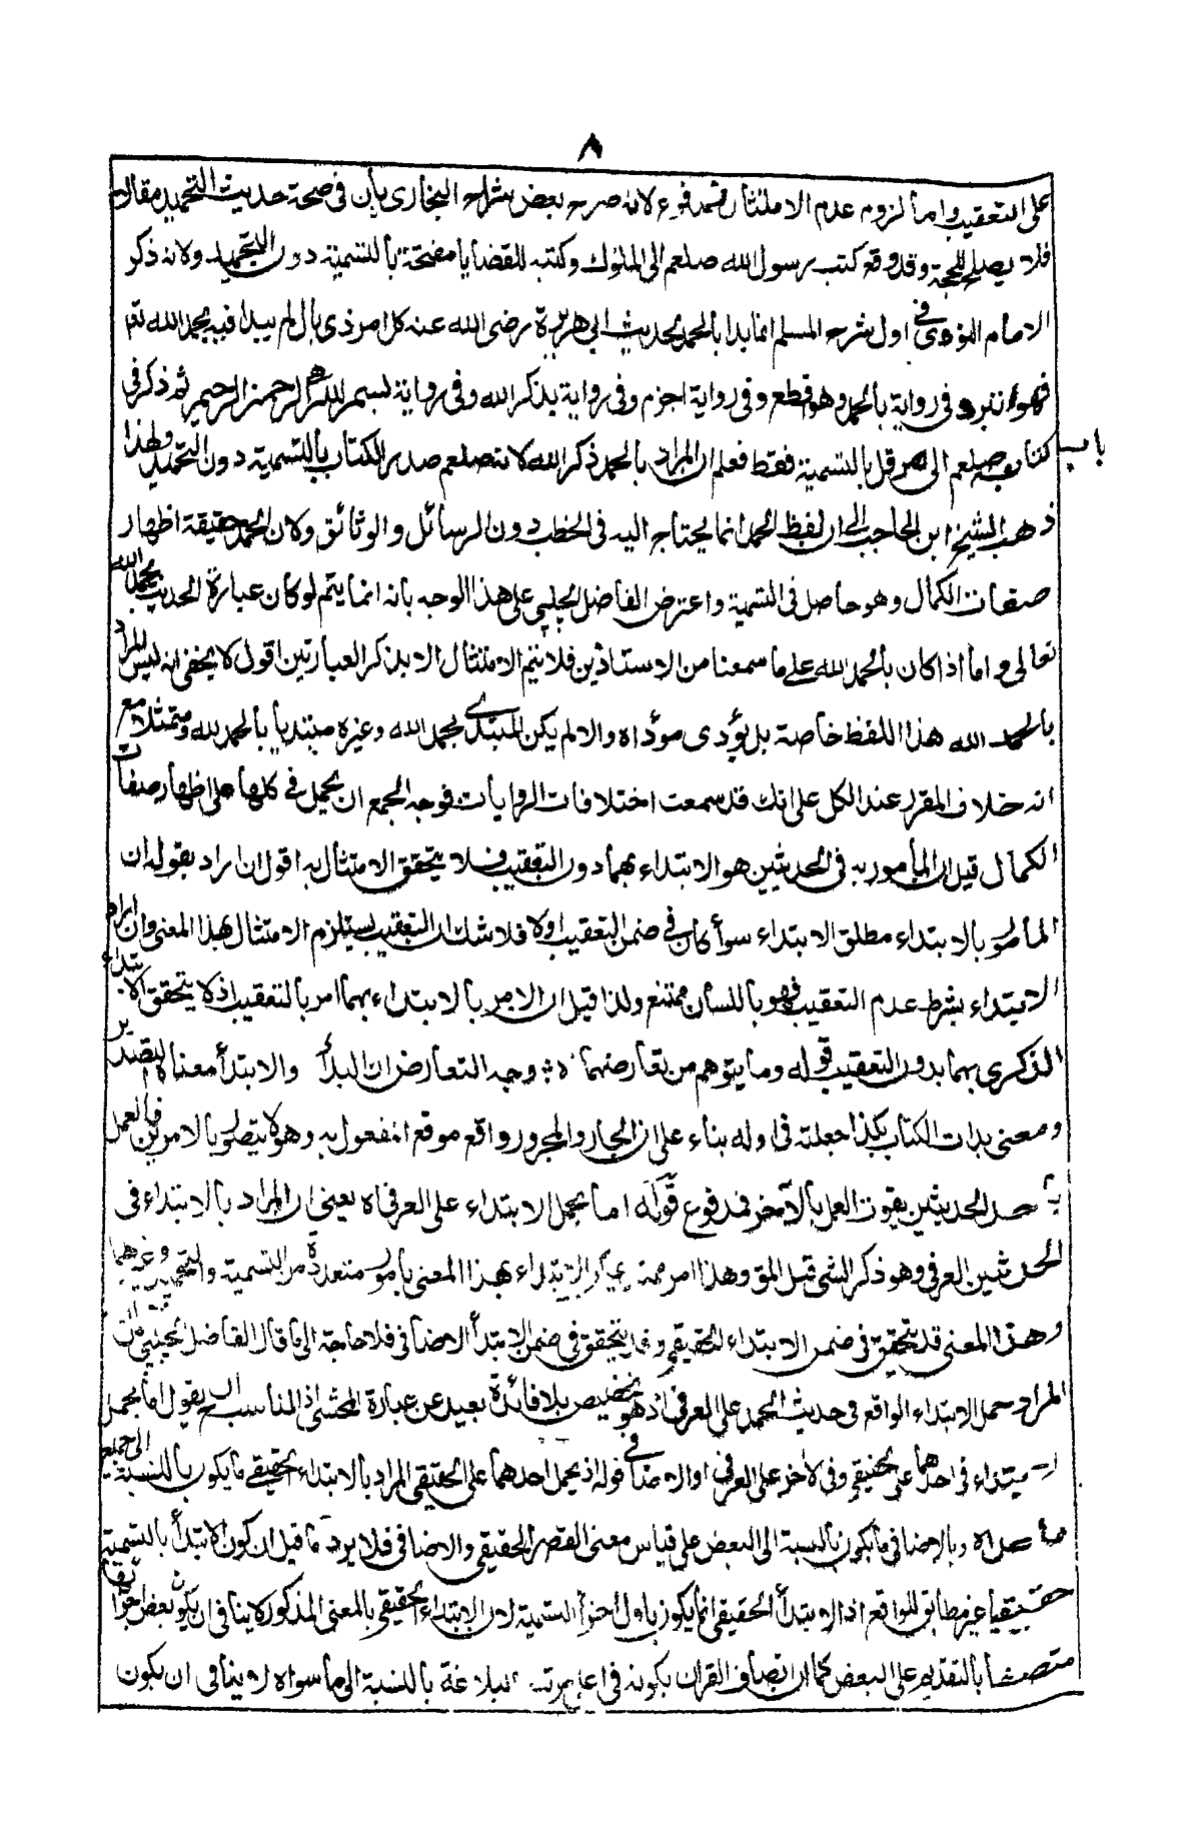 ٨
على التعقيب واما لزوم عدم الامتثال فمدفوع لانه صرح بعض شراح البخارى بأن فى صحة حديث التحميد مقال
فلا يصلح للحجة وقد وقع كتب رسول الله صلعم الى الملوك وكتبه للقضايا مفتحة بالتسمية دون التحميد ولانه ذكر
الامام النووى فى اول شرح المسلم انما بدا بالحمد لحديث ابى هريرة رضى الله عنه كل امر ذى بال لم يبدا فيه بحمد الله تع
فهو ابتر وفى رواية بالحمد وهو اقطع وفى رواية اجزم وفى رواية بذكر الله وفى رواية بسم الله الرحمن الرحيم ثم ذكر فى
باب كتابه صلعم الى هرقل بالتسمية فقط فعلم ان المراد بالحمد ذكر الله لانه صلعم صدر الكتاب بالتسمية دون التحميد ولهذا
ذهب الشيخ ابن الحاجب الى ان لفظ الحمد انما يحتاج اليه فى الخطب دون الرسائل والوثائق ولان الحمد حقيقة اظهار
صفات الكمال وهو حاصل فى التسمية واعترض الفاضل الچلپى على هذا الوجه بانه انما يتم لو كان عبارة الحديث بحمد الله
تعالى واما اذا كان بالحمد لله على ما سمعنا من الاستاذين فلا يتم الامتثال الا بذكر العبارتين اقول لا يخفى انه ليس المراد
بالحمد لله هذا اللفظ خاصة بل يؤدى مؤداه والا لم يكن المبتدى بحمد الله وغيره مبتديا بالحمد لله ومتمثلا مع
انه خلاف المقرر عند الكل على انك قد سمعت اختلافات الروايات فوجه الجمع ان يحمل فى كلها على اظهار صفات
الكمال قيل ان المأمور به فى الحديثين هو الابتداء بهما دون التعقيب فلا يتحقق الامتثال به اقول ان اراد بقوله ان
المأمور بالابتداء مطلق الابتداء سواء كان فى ضمن التعقيب اولا فلا شك ان التعقيب يستلزم الامتثال بهذا المعنى وان اراد
الابتداء بشرط عدم التعقيب فهو باللسان ممتنع ولذا قيل ان الامر بالابتداء بهما امر بالتعقيب اذ لا يتحقق الابتداء
الذكرى بهما بدون التعقيب قوله وما يتوهم من تعارضهما اه وجه التعارض ان البدأ والابتدأ معناه التصدير
ومعنى بدات الكتاب بكذا جعلته فى اوله بناء على ان الجار والمجرور واقع موقع المفعول به وهو لا يتصور بالامرين فالعمل
باحد الحديثين يفوت العمل بالآخر فمدفوع قوله اما بحمل الابتداء على العرفى اه يعنى ان المراد بالابتداء فى
الحديثين العرفى وهو ذكر الشئ قبل المق وهذا امر ممتد يمكن الابتداء بهذا المعنى بامور متعددة من التسمية والتحميد وغيرهما
وهذا المعنى قد يتحقق فى ضمن الابتداء الحقيقى وقد يتحقق فى ضمن الابتدأ الاضافى فلا حاجة الى ما قال الفاضل الچلپى ان
المراد حمل الابتداء الواقع فى حديث الحمد على العرفى اذ هو تخصيص بلا فائدة بعيد عن عبارة المحشى اذ المناسب ان يقول اما بحمل
الابتداء فى احدهما على الحقيقى وفى الاخر على العرفى او الاضافى قوله اذ يحمل احدهما على الحقيقى المراد بالابتداء الحقيقى ما يكون بالنسبة الى جميع
ما عداه وبالاضافى ما يكون بالنسبة الى البعض على قياس معنى القصر الحقيقى والاضافى فلا يرد ما قيل ان كون الابتدأ بالتسمية
حقيقيا غير مطابق للواقع اذ الابتدأ الحقيقى انما يكون باول اجزأ التسمية لان الابتداء الحقيقى بالمعنى المذكور لا ينافى ان يكون بعض اجزائها
متصفا بالتقديم على البعض كما ان اتصاف القران بكونه فى اعلى مرتبة البلاغة بالنسبة الى ما سواه لا ينافى ان يكون